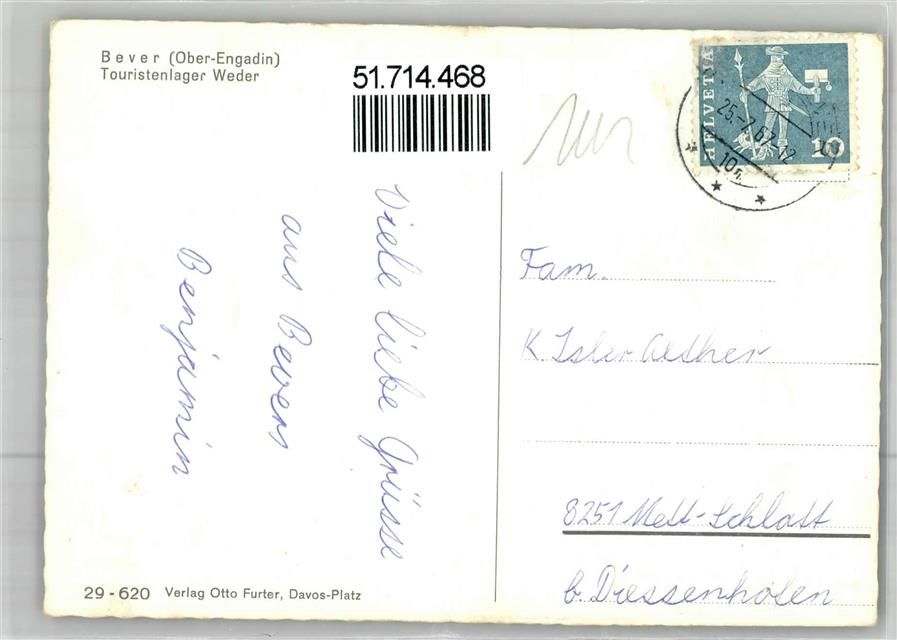 Bever (Ober-Engadin)
Touristenlager Weder
51.714.468
HELVETIA
10
25.-7.67-12
Viele liebe Grüsse
aus Bevers
Benjamin
Fam.
K Isler Aelher
8251 Mett-Schlatt
b. Diessenhofen
29-620 Verlag Otto Furter, Davos-Platz